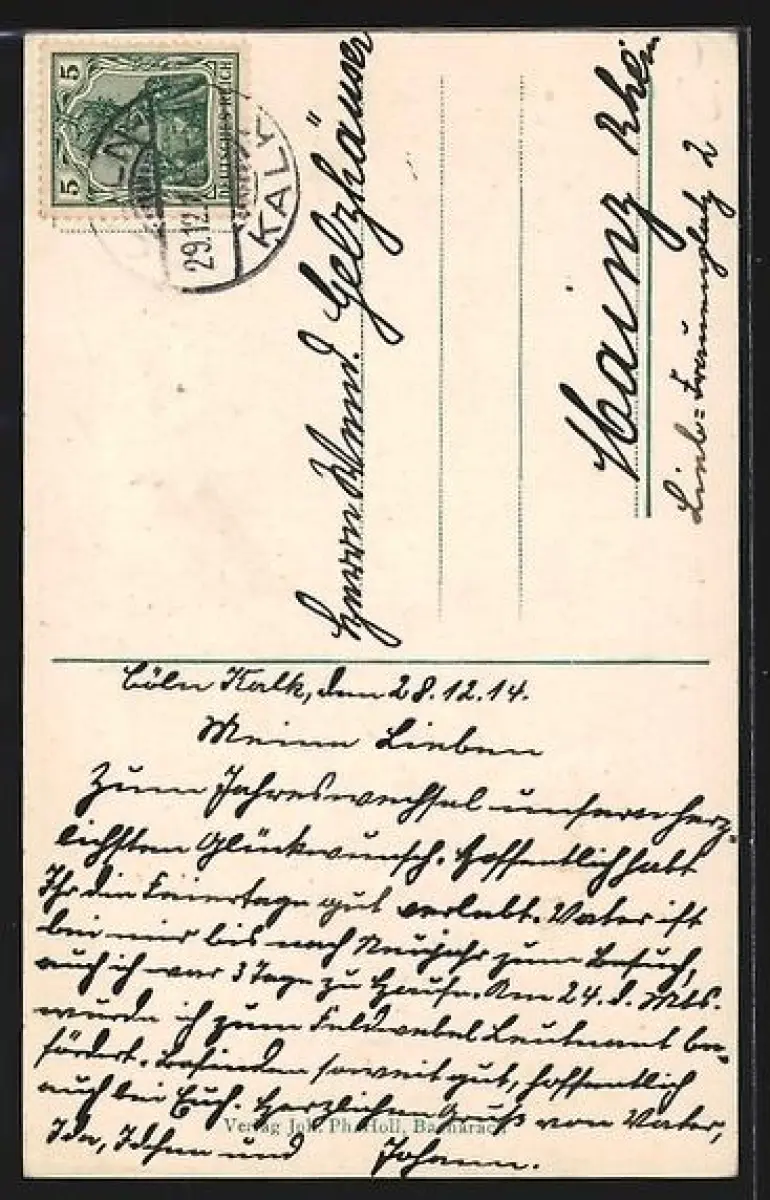 5 5
DEUTSCHES REICH
CÖLN
KALK
29.12.1
Herrn Wend. Gelzhäuser
Mainz Rhein
Lieb=Frauenplatz 2
Cöln Kalk, den 28.12.14.
Meine Lieben
Zum Jahreswechsel unsere herz-
lichsten Glückwunsch. Hoffentlich habt
Ihr die Feiertage gut verlebt. Vater ist
bei mir bis nach Neujahr zum Besuch,
auch ich war 3 Tage zu Hause. Am 24. d. Mts.
wurde ich zum Feldwebel Leutnant be-
fördert. Befinden soweit gut, hoffentlich
auch bei Euch. Herzlichen Gruß von Vater,
Ida, Idchen und Johann.
Verlag Joh. Ph. Holl, Bacharach